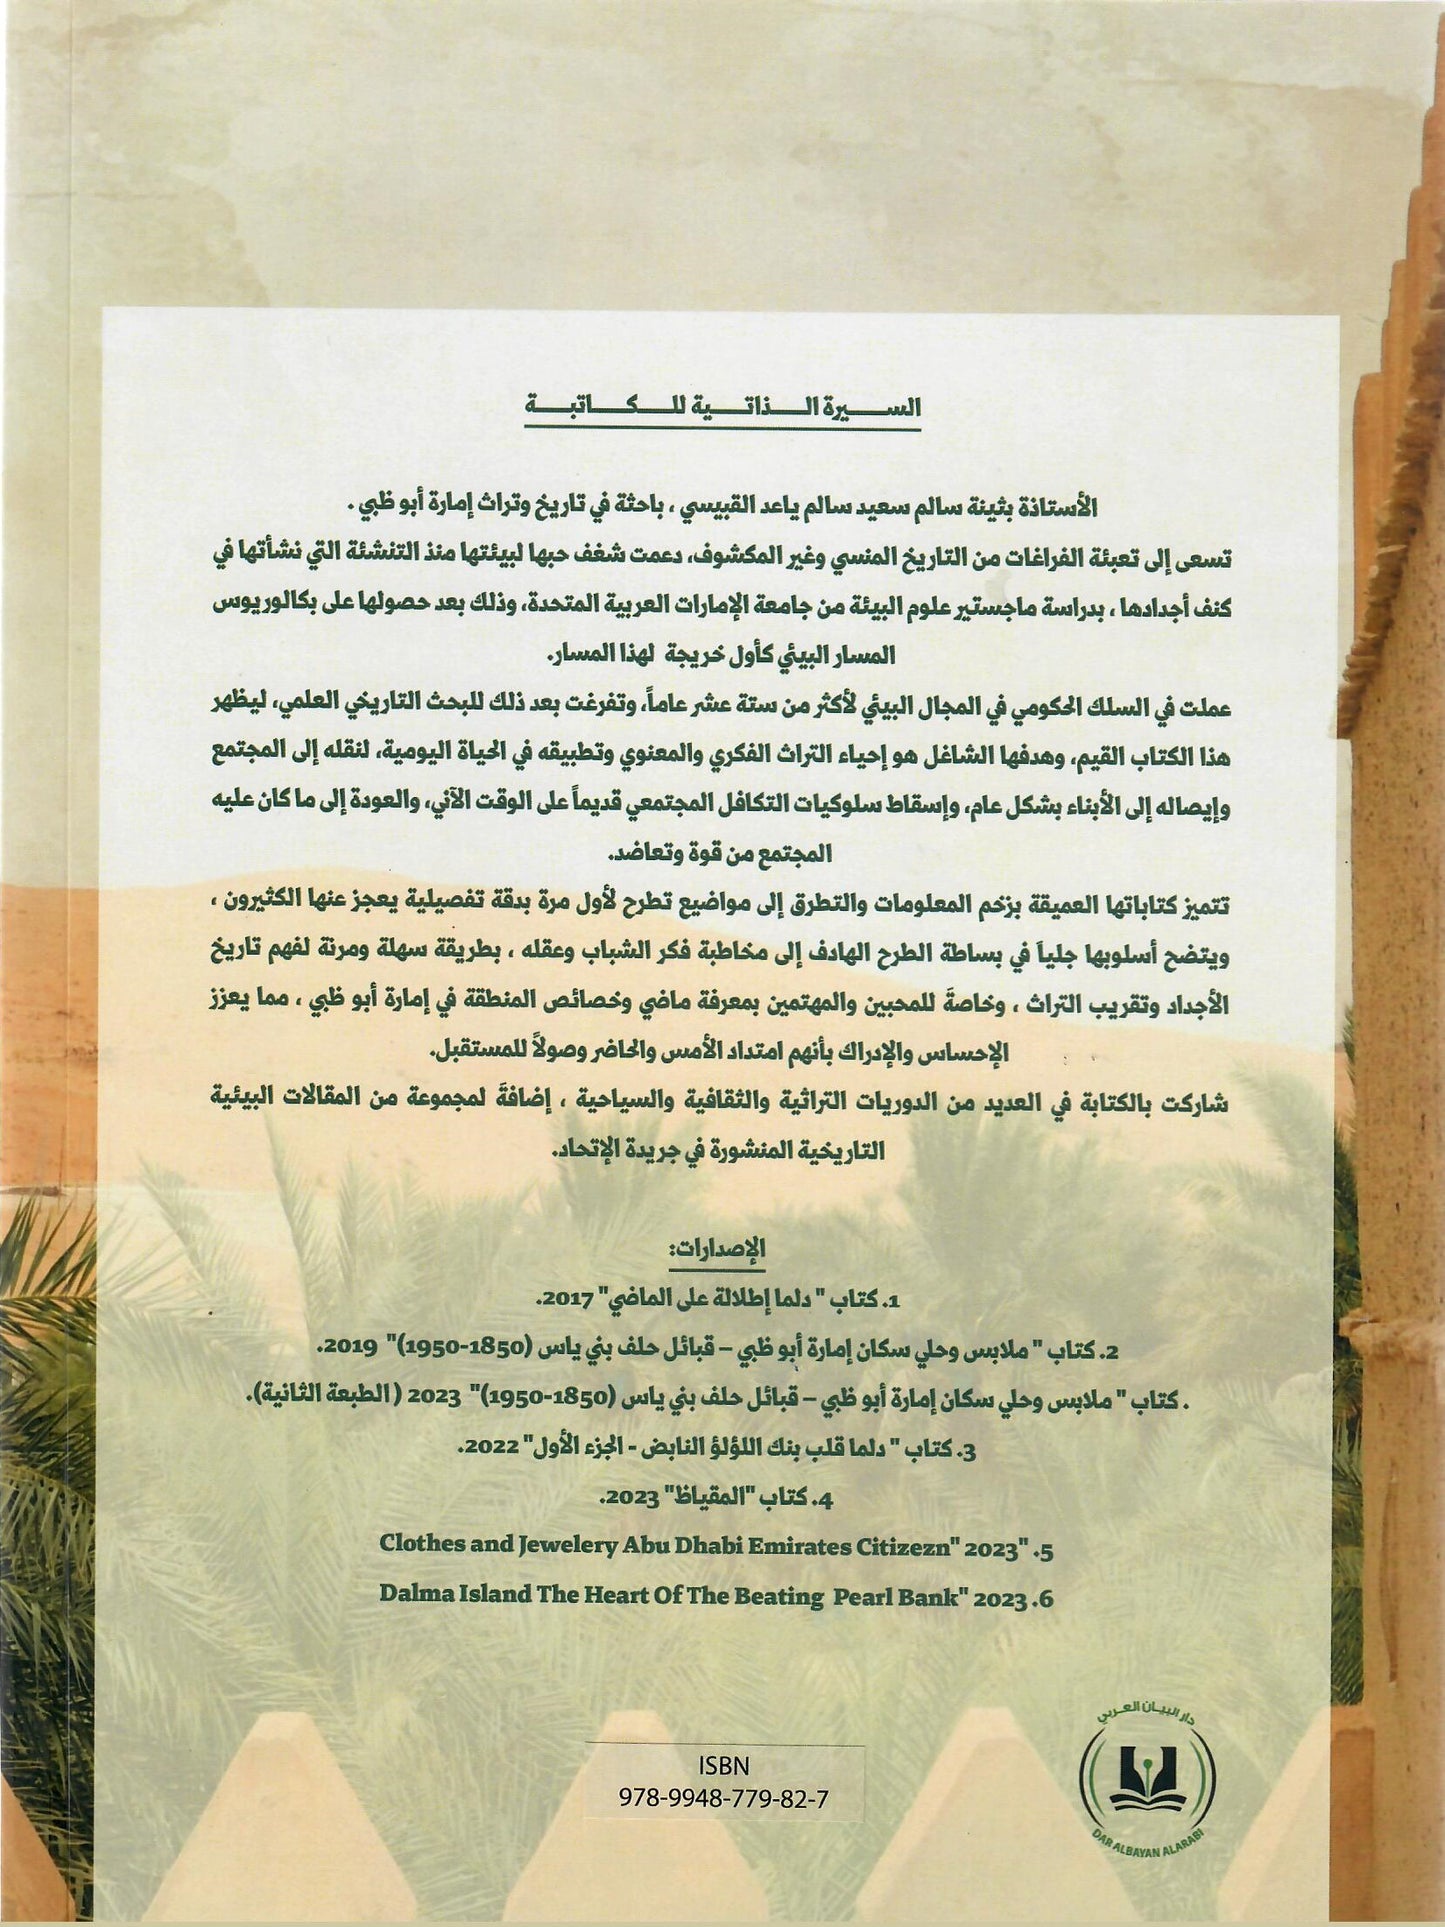 السيرة الذاتية للكاتبة
الأستاذة بثينة سالم سعيد سالم ياعد القبيسي ، باحثة في تاريخ وتراث إمارة أبو ظبي .
تسعى إلى تعبئة الفراغات من التاريخ المنسي وغير المكشوف، دعمت شغف حبها لبيئتها منذ التنشئة التي نشأتها في
كنف أجدادها ، بدراسة ماجستير علوم البيئة من جامعة الإمارات العربية المتحدة، وذلك بعد حصولها على بكالوريوس
المسار البيئي كأول خريجة لهذا المسار.
عملت في السلك الحكومي في المجال البيئي لأكثر من ستة عشر عاماً، وتفرغت بعد ذلك للبحث التاريخي العلمي، ليظهر
هذا الكتاب القيم، وهدفها الشاغل هو إحياء التراث الفكري والمعنوي وتطبيقه في الحياة اليومية، لنقله إلى المجتمع
وإيصاله إلى الأبناء بشكل عام، وإسقاط سلوكيات التكافل المجتمعي قديماً على الوقت الآني، والعودة إلى ما كان عليه
المجتمع من قوة وتعاضد.
تتميز كتاباتها العميقة بزخم المعلومات والتطرق إلى مواضيع تطرح لأول مرة بدقة تفصيلية يعجز عنها الكثيرون ،
ويتضح أسلوبها جلياً في بساطة الطرح الهادف إلى مخاطبة فكر الشباب وعقله ، بطريقة سهلة ومرنة لفهم تاريخ
الأجداد وتقريب التراث ، وخاصةً للمحبين والمهتمين بمعرفة ماضي وخصائص المنطقة في إمارة أبو ظبي ، مما يعزز
الإحساس والإدراك بأنهم امتداد الأمس والحاضر وصولاً للمستقبل.
شاركت بالكتابة في العديد من الدوريات التراثية والثقافية والسياحية ، إضافةً لمجموعة من المقالات البيئية
التاريخية المنشورة في جريدة الإتحاد.
الإصدارات:
1. كتاب " دلما إطلالة على الماضي" 2017.
2. كتاب " ملابس وحلي سكان إمارة أبو ظبي – قبائل حلف بني ياس (1850-1950)" 2019.
. كتاب " ملابس وحلي سكان إمارة أبو ظبي – قبائل حلف بني ياس (1850-1950)" 2023 ( الطبعة الثانية).
3. كتاب " دلما قلب بنك اللؤلؤ النابض - الجزء الأول" 2022.
4. كتاب "المقياظ" 2023.
Clothes and Jewelery Abu Dhabi Emirates Citizezn" 2023" .5
Dalma Island The Heart Of The Beating Pearl Bank" 2023 .6
دار البيان العربي
DAR ALBAYAN ALARABI
ISBN
978-9948-779-82-7